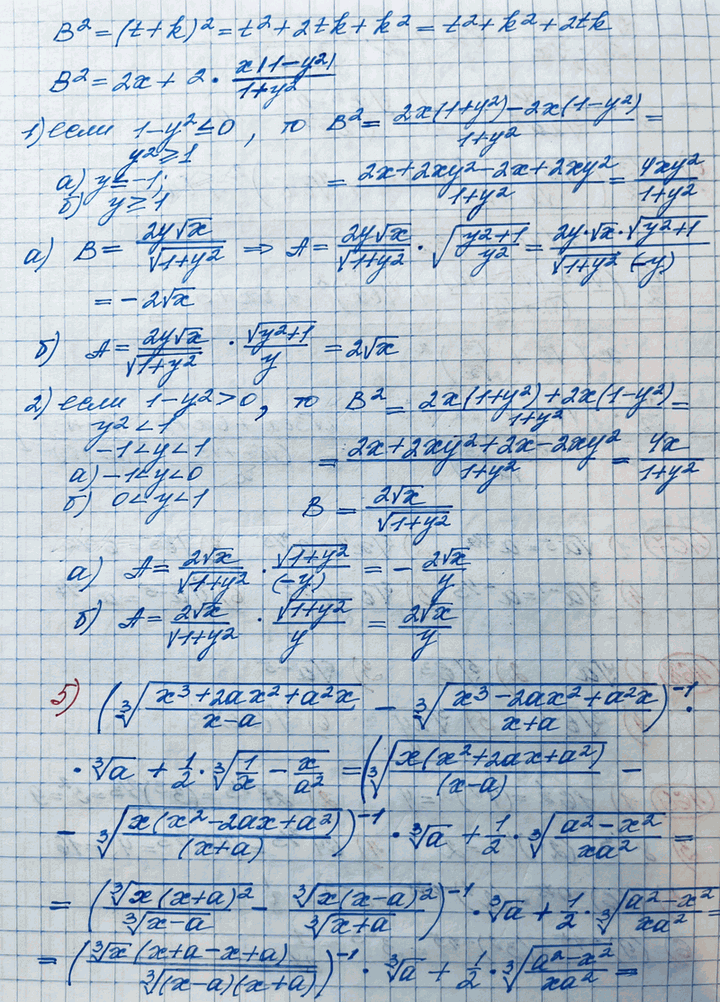 B² = (t+k)² = t² + 2tk + k² = t² + k² + 2tk
B² = 2x + 2 · x|1-y²|/(1+y²)
1) если 1-y² ≤ 0, то B² = (2x(1+y²) - 2x(1-y²))/(1+y²) =
y² ≥ 1
а) y ≤ -1; = (2x+2xy²-2x+2xy²)/(1+y²) = 4xy²/(1+y²)
б) y ≥ 1
а) B = 2y√x/√(1+y²) ⇒ A = 2y√x/√(1+y²) · √((y²+1)/y²) = (2y·√x·√(y²+1))/(√(1+y²) (-y))
= -2√x
б) A = 2y√x/√(1+y²) · √(y²+1)/y = 2√x
2) если 1-y² > 0, то B² = (2x(1+y²) + 2x(1-y²))/(1+y²) =
y² < 1
-1 < y < 1 = (2x+2xy²+2x-2xy²)/(1+y²) = 4x/(1+y²)
а) -1 < y < 0
б) 0 < y < 1 B = 2√x/√(1+y²)
а) A = 2√x/√(1+y²) · √(1+y²)/(-y) = - 2√x/y
б) A = 2√x/√(1+y²) · √(1+y²)/y = 2√x/y
5) (∛((x³+2ax²+a²x)/(x-a)) - ∛((x³-2ax²+a²x)/(x+a)))⁻¹ ·
· ∛a + 1/2 · ∛(1/x - x/a²) = (∛(x(x²+2ax+a²)/(x-a)) -
- ∛(x(x²-2ax+a²)/(x+a)))⁻¹ · ∛a + 1/2 · ∛((a²-x²)/(xa²)) =
= (∛(x(x+a)²)/∛(x-a) - ∛(x(x-a)²)/∛(x+a))⁻¹ · ∛a + 1/2 · ∛((a²-x²)/(xa²)) =
= (∛x(x+a-x+a)/∛((x-a)(x+a)))⁻¹ · ∛a + 1/2 · ∛((a²-x²)/(xa²)) =